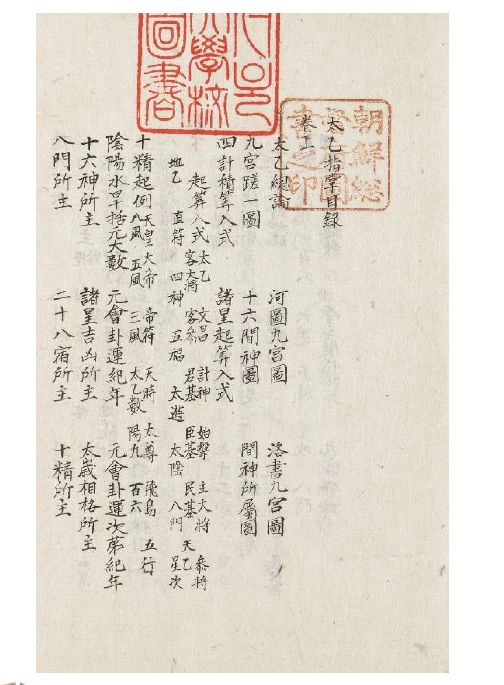 朝鮮總
督府圖
書之印
學校
圖書
太乙指掌目録
卷上
太乙總論 河圖九宮圖 洛書九宮圖
九宮蹉一圖 十六間神圖 間神所屬圖
四計積筭入式 諸星起筭入式
起筭入式 太乙 文昌 計神 始擊 主大將 參將
客大將 客參 君基 臣基 民基 天乙
地乙 直符 四神 五福 太遊 太陰 八門 星次
十精起例 天皇大帝 帝符 天時 太尊 飛鳥 五行
八風 五風 三風 太乙數 陽九 百六
陰陽水旱括元大數 元會卦運紀年 元會卦運次第紀年
十六神所主 諸星吉凶所主 太歲相格所主
八門所主 二十八宿所主 十精所主